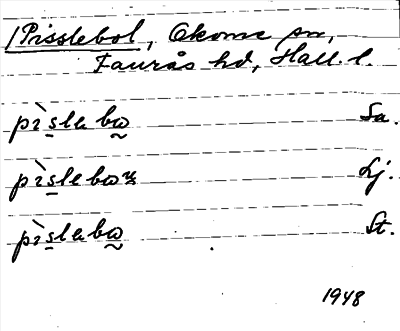 /Pisslebol, Okome sn,
Faurås hd, Hall. l.
pìslebo Sa.
pìslebo Lj.
pìslebo St.
1948